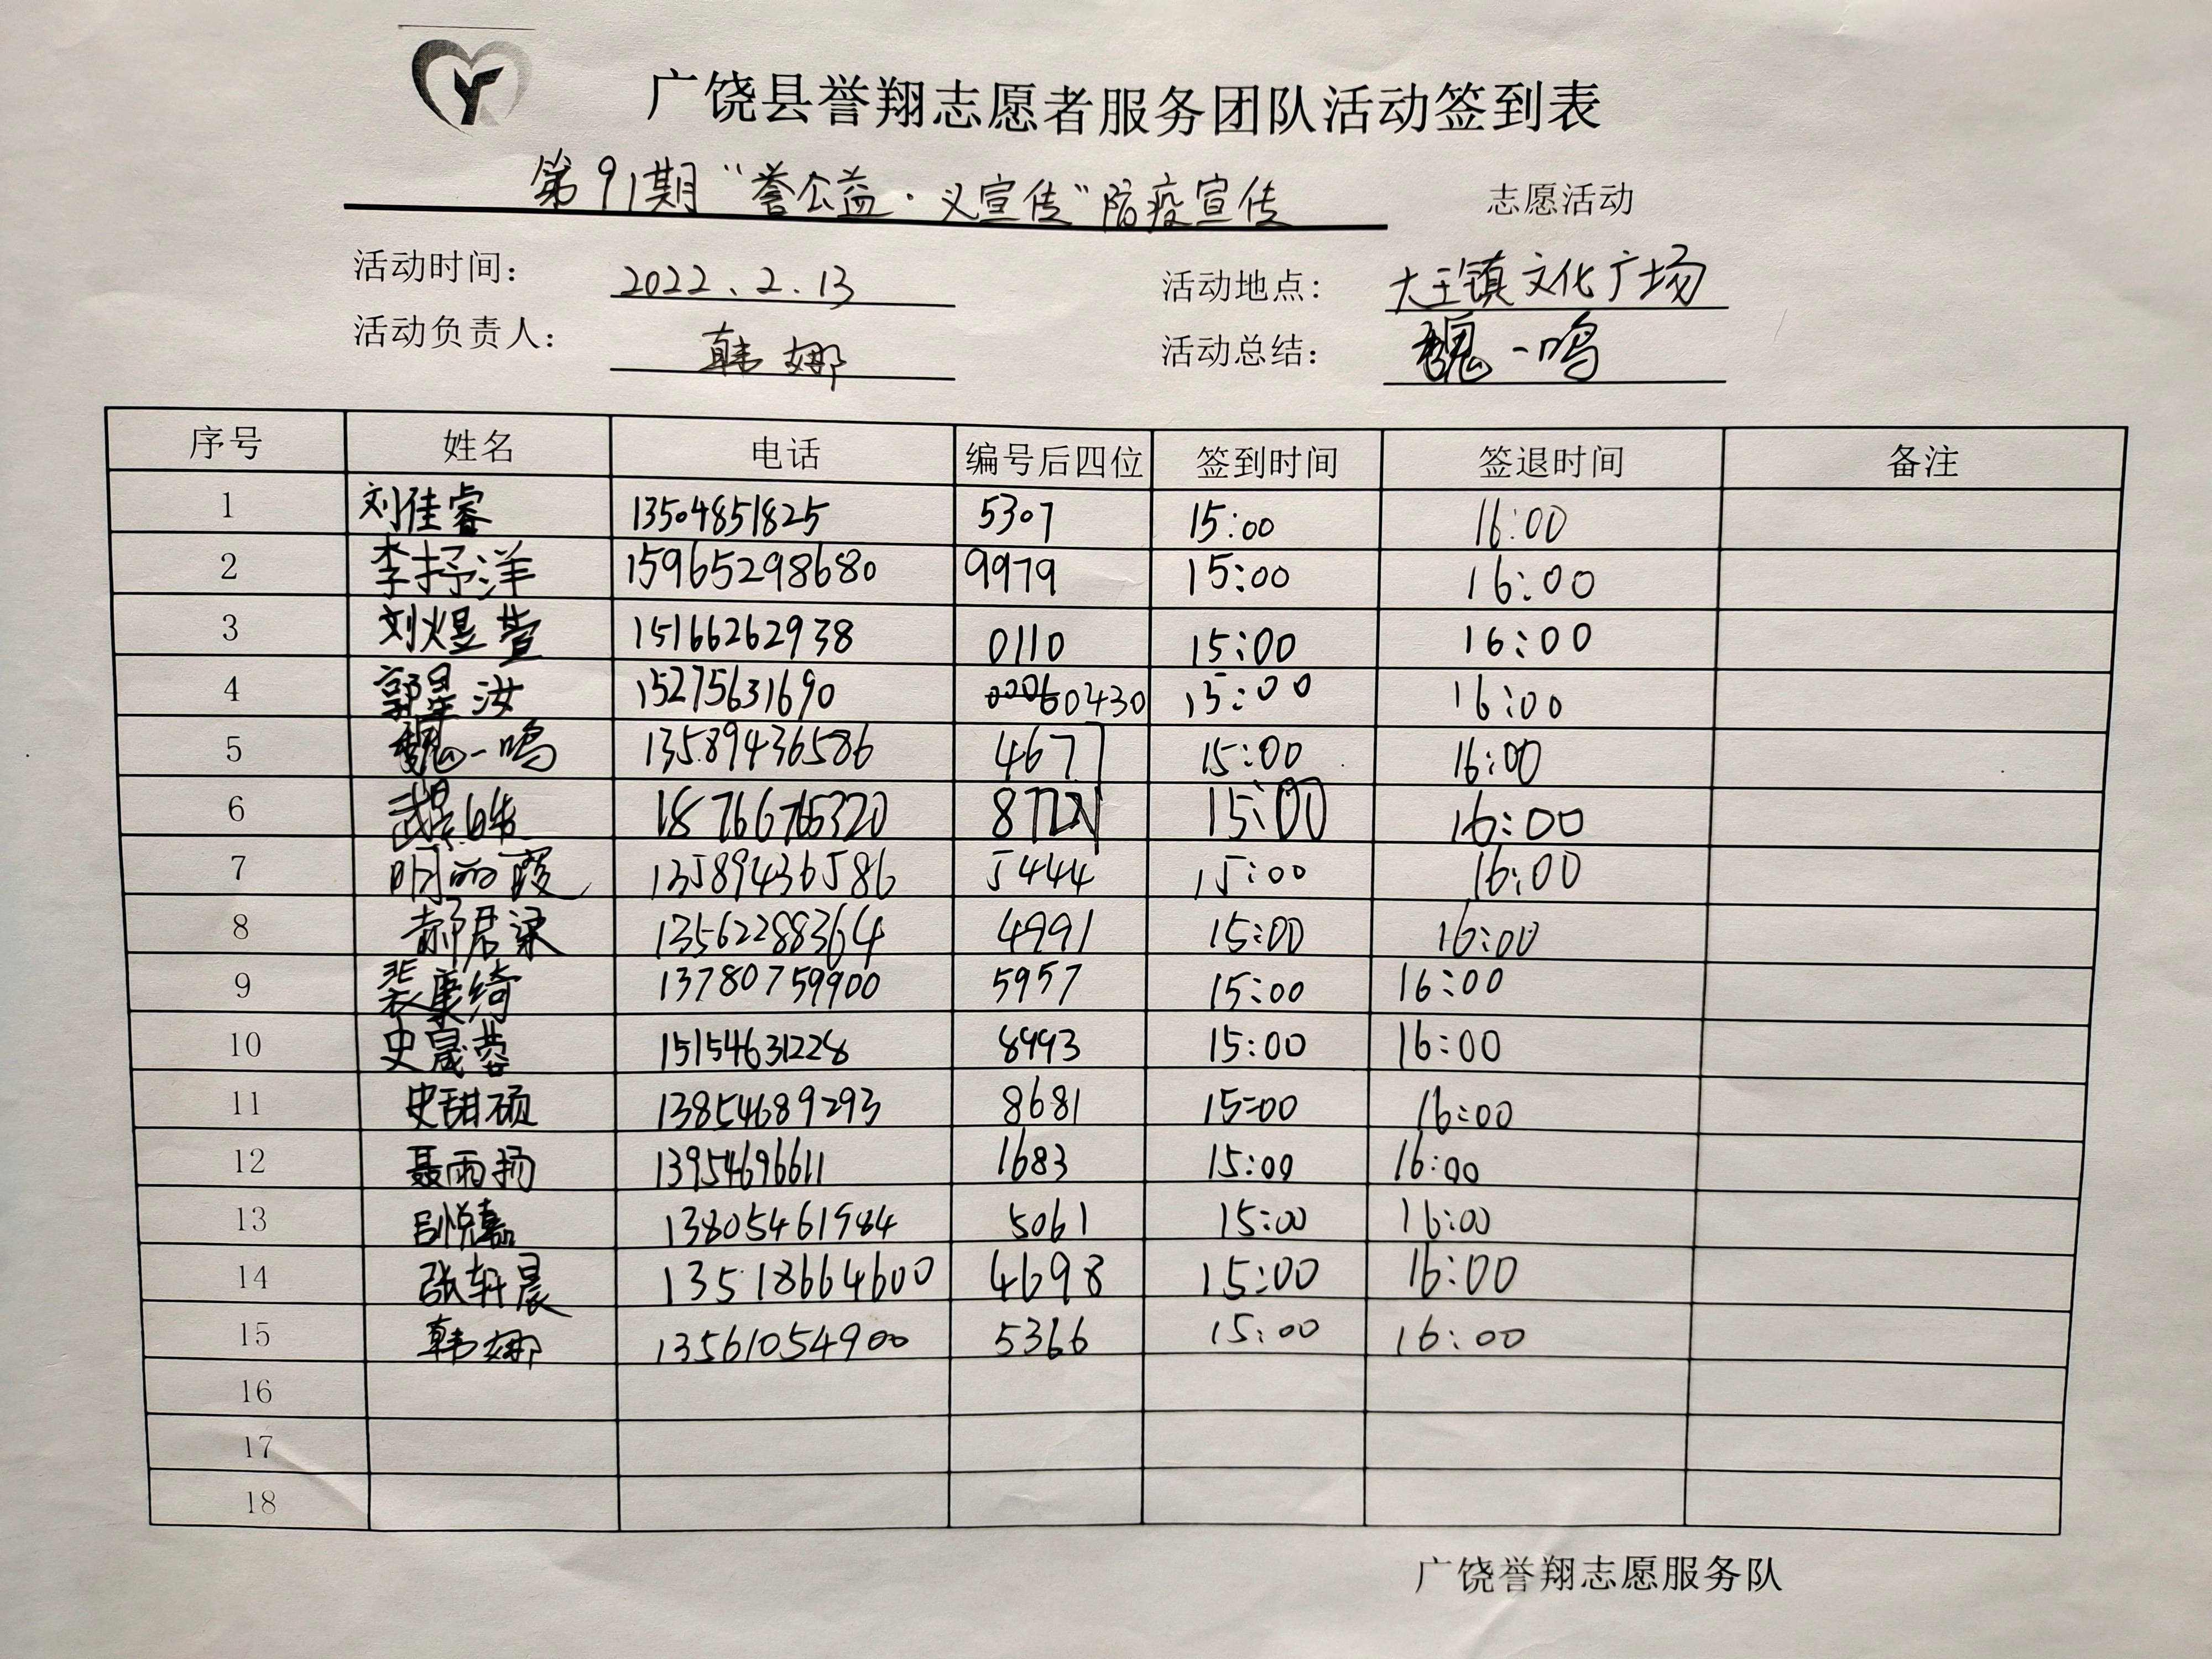 广饶县誉翔志愿者服务团队活动签到表
第91期"誉公益·义宣传"防疫宣传 志愿活动
活动时间: 2022.2.13 活动地点: 大王镇文化广场
活动负责人: 韩娜 活动总结: 魏一鸣
序号 姓名 电话 编号后四位 签到时间 签退时间 备注
1 刘佳睿 13504851825 5307 15:00 16:00
2 李抒洋 15965298680 9979 15:00 16:00
3 刘煜萱 15166262938 0110 15:00 16:00
4 郭星汝 15275631690 0430 15:00 16:00
5 魏一鸣 13589436586 4677 15:00 16:00
6 18766765320 15:00 16:00
7 明丽霞 13589436586 5444 15:00 16:00
8 郝君梁 13562288364 4991 15:00 16:00
9 裴康绮 13780759900 5957 15:00 16:00
10 史晟蓉 15154631228 8993 15:00 16:00
11 史甜硕 13854689293 8681 15:00 16:00
12 聂雨扬 13954696611 1683 15:00 16:00
13 吕悦嘉 13805461984 5061 15:00 16:00
14 张轩晨 13518664600 4698 15:00 16:00
15 韩娜 13561054900 5366 15:00 16:00
16
17
18
广饶誉翔志愿服务队